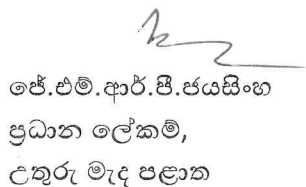 ජේ.එම්.ආර්.පී.ජයසිංහ
ප්‍රධාන ලේකම්,
උතුරු මැද පළාත